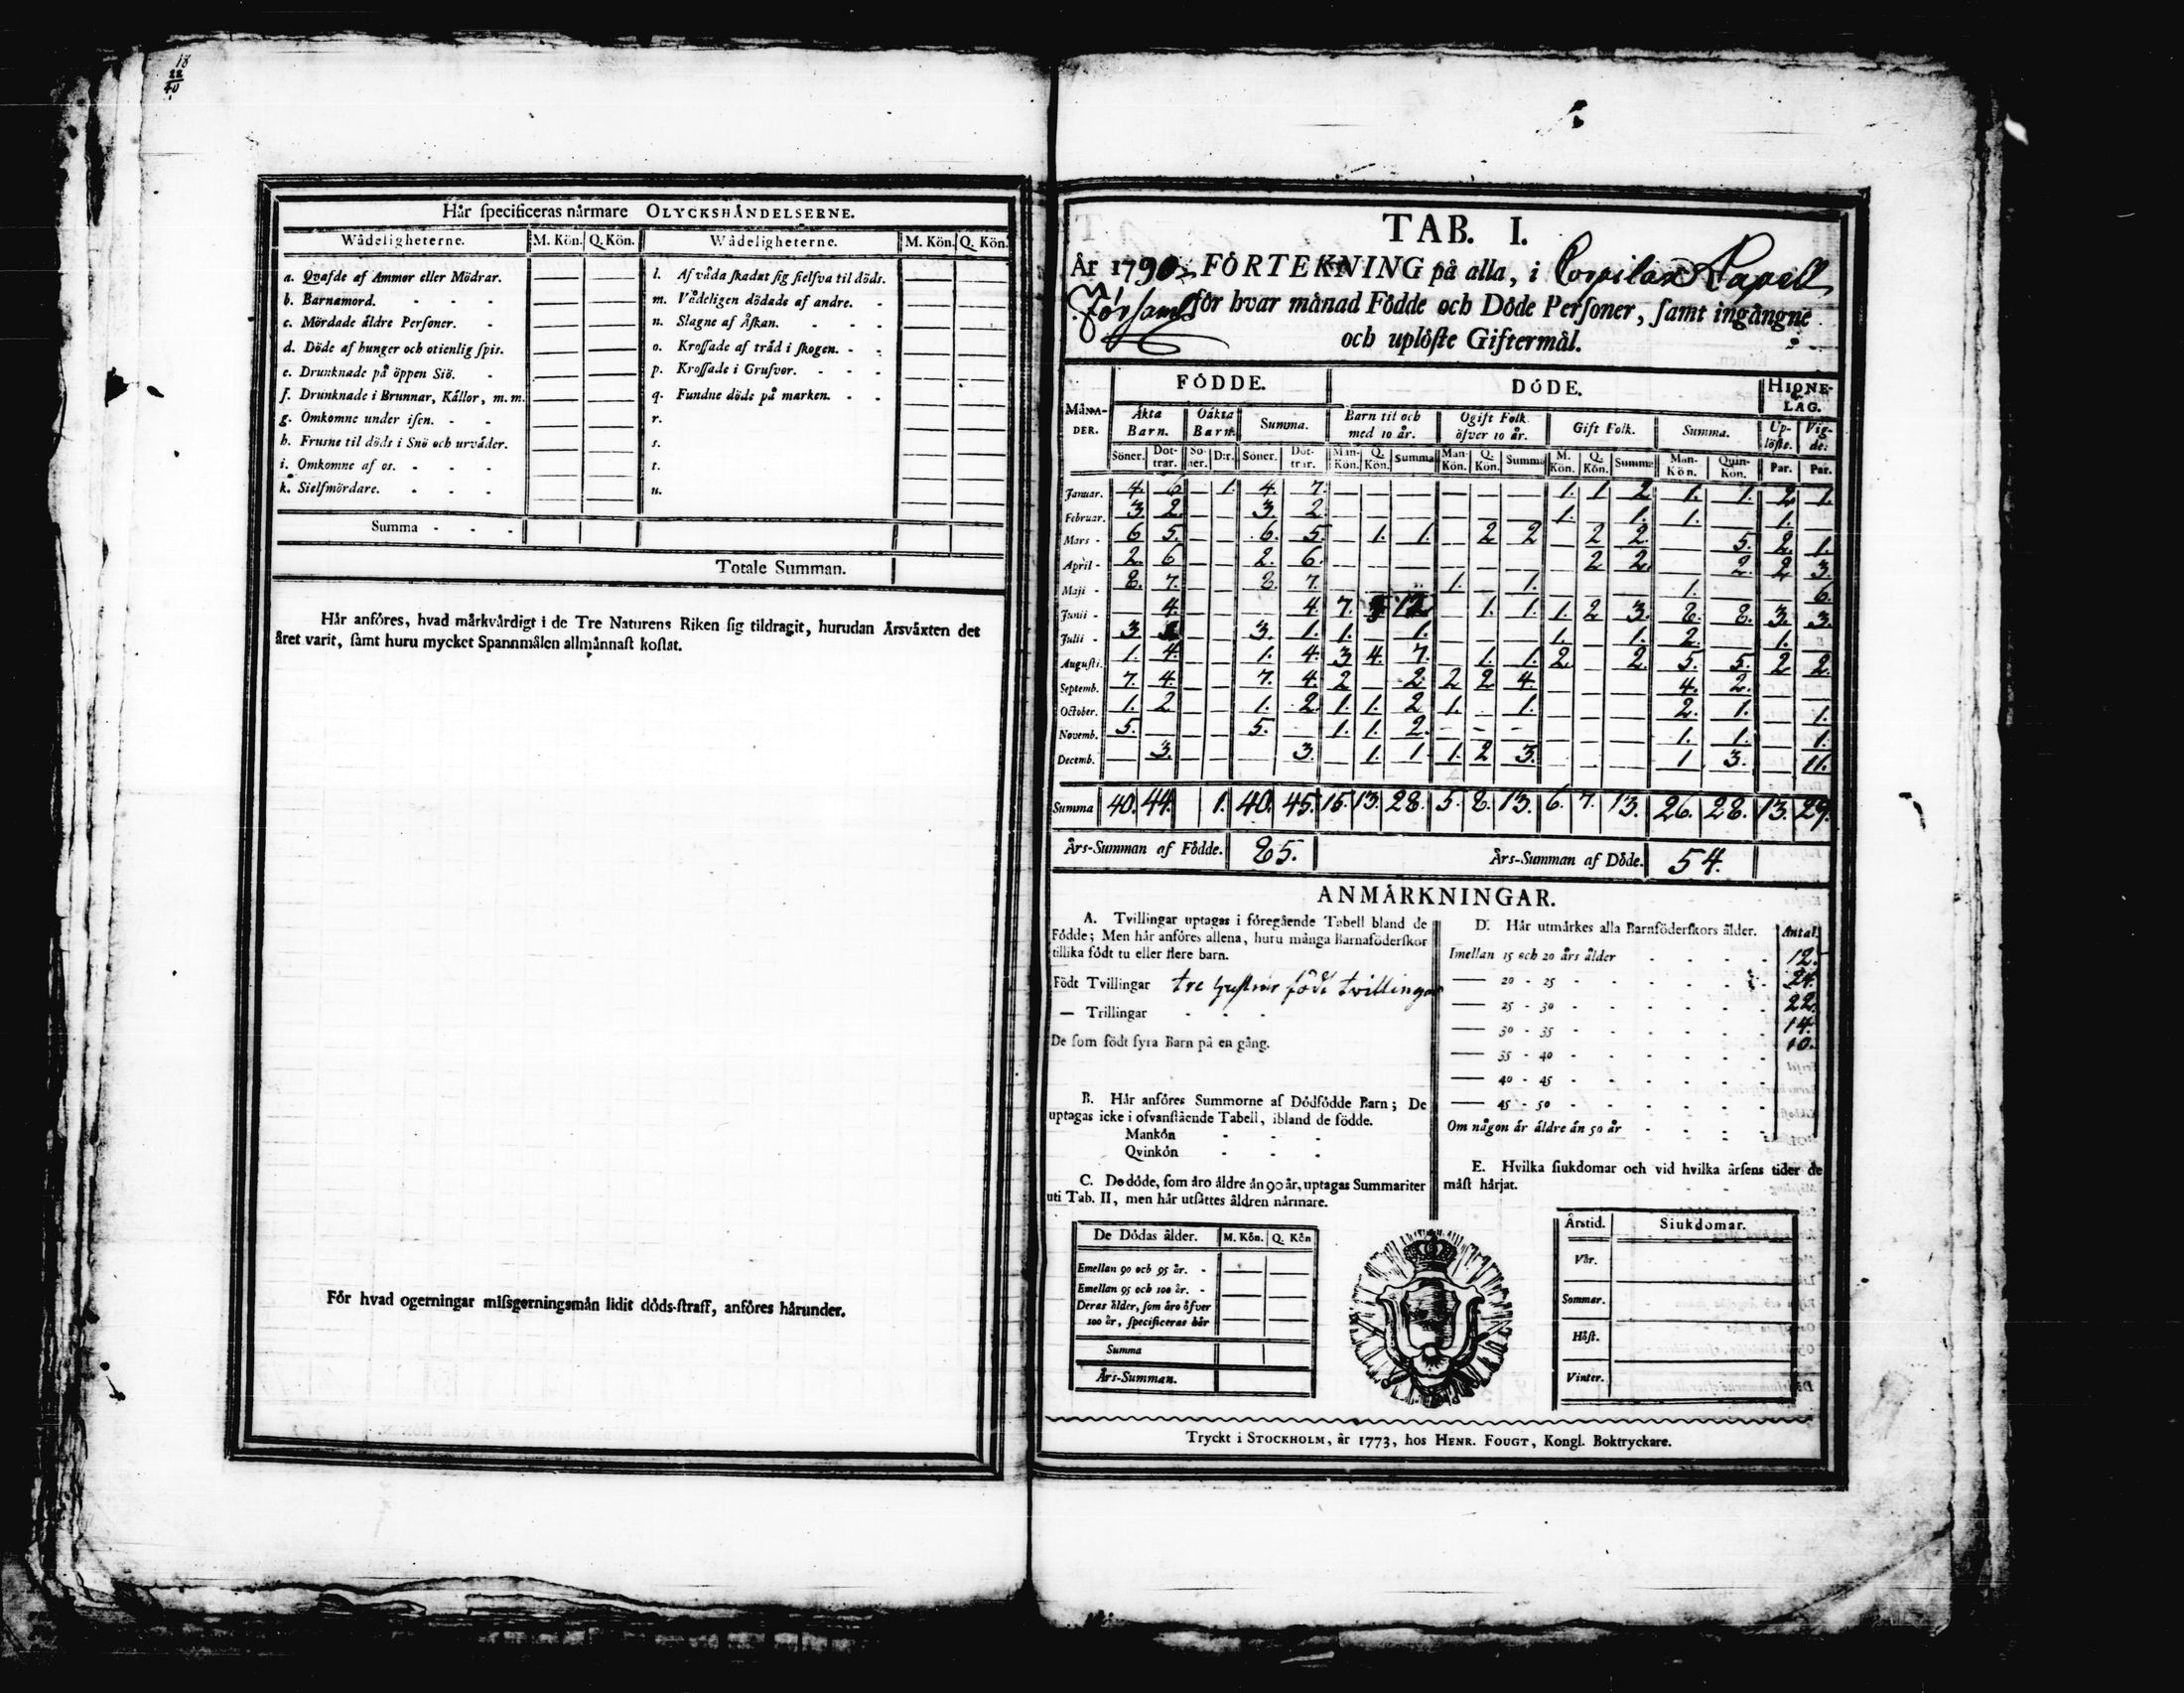 18
22
40
Hår specificeras nårmare OLYCKSHÅNDELSERNE.
Wådeligheterne. M. Kön. Q. Kön. Wådeligheterne. M. Kön. Q. Kön.
a. Qvafde af Ammor eller Mödrar. l. Af våda skadat sig sielfva til döds.
b. Barnamord. - - - m. Vådeligen dödade af andre. -
c. Mördade åldre Personer. - n. Slagne af Åskan. - - -
d. Döde af hunger och otienlig spis. o. Krossade af tråd i skogen. - -
e. Drunknade på öppen Siö. - p. Krossade i Grufvor. - - -
f. Drunknade i Brunnar, Kållor, m. m. q. Fundne döde på marken. - -
g. Omkomne under isen. - - r.
h. Frusne til döds i Snö och urvåder. s.
i. Omkomne af os. - - - t.
k. Sielfmördare. - - - u.
Summa - - -
Totale Summan.
Hår anföres, hvad mårkvårdigt i de Tre Naturens Riken sig tildragit, hurudan Årsvåxten det
året varit, samt huru mycket Spannmålen allmånnast kostat.
För hvad ogerningar missgerningsmån lidit döds-straff, anföres hårunder.
TAB. I.
År 1790. FÖRTEKNING på alla, i Kapell
Församl för hvar månad Födde och Döde Personer, samt ingångne
och uplöste Giftermål.
MÅNA-DER. FÖDDE. DÖDE. HIONE-LAG.
Åkta Barn. Oåkta Barn. Summa. Barn til och med 10 år. Ogift Folk öfver 10 år. Gift Folk. Summa. Up-löste. Vig-de:
Söner. Döt-trar. Sö-ner. D:r. Söner. Döt-trar. Man-Kön. Q. Kön. Summa Man-Kön. Q. Kön. Summa M. Kön. Q. Kön. Summa Man-Kön. Quin-Kön. Par. Par.
Januar. 4. 6. — 1. 4. 7. — — — — — — 1. 1 2 1. 1. 2 1.
Februar. 3 2. — — 3. 2 — — — — — — 1. — 1. 1. — 1. —
Mars - 6 5. — — 6. 5. — 1. 1. — 2 2 — 2 2. — 5. 2. 1.
April - 2. 6 — — 2. 6. — — — — — — — 2 2. — 2. 2 3.
Maji - 8. 7. — — 8. 7. — — — 1. — 1. — — — 1. — — 6.
Junii - — 4. — — — 4. 7. 5 12. — 1. 1. 1. 2 3. 8. 8. 3. 3.
Julii - 3 1 — — 3. 1. 1. — 1. — — — 1. — 1. 2. — 1. —
Augusti. 1. 4. — — 1. 4. 3 4. 7. — 1. 1. 2. — 2. 5. 5. 2 2.
Septemb. 7. 4. — — 7. 4. 2 — 2 2 2 4. — — — 4. 2. — —
October. 1. 2 — — 1. 2. 1. 1. 2 1. — 1. — — — 2. 1. — 1.
Novemb. 5. — — — 5. — 1. 1. 2. — — — — — — 1. 1. — 1.
Decemb. — 3. — — — 3. — 1. 1 1. 2 3. — — — 1 3. — 11.
Summa 40. 44. 1. 40. 45. 15. 13. 28. 5. 8. 13. 6. 7. 13. 26. 28. 13. 29.
Års-Summan af Födde. 85. Års-Summan af Döde. 54.
ANMÅRKNINGAR.
A. Tvillingar uptagas i föregående Tabell bland de
Födde; Men hår anföres allena, huru många Barnaföderskor
tillika födt tu eller flere barn.
Födt Tvillingar tre hustrur födt tvillingar
— Trillingar - - -
De som födt fyra Barn på en gång.
B. Hår anföres Summorne af Dödfödde Barn; De
uptagas icke i ofvanstående Tabell, ibland de födde.
Mankön - - -
Qvinkön - - -
C. De döde, som åro åldre ån 90 år, uptagas Summariter
uti Tab. II, men hår utsåttes åldren nårmare.
De Dödas ålder. M. Kön. Q. Kön
Emellan 90 och 95 år. -
Emellan 95 och 100 år. -
Deras ålder, som åro öfver
100 år, specificeras hår
Summa
Års-Summan.
D. Hår utmårkes alla Barnföderskors ålder. Antal.
Imellan 15 och 20 års ålder - - - - 12.
— 20 - 25 - - - - - - 24.
— 25 - 30 - - - - - - 22.
— 30 - 35 - - - - - - 14.
— 35 - 40 - - - - - - 10.
— 40 - 45 - - - - - -
— 45 - 50 - - - - - -
Om någon år åldre ån 50 år - - - -
E. Hvilka siukdomar och vid hvilka årsens tider de
måst hårjat.
Årstid. Siukdomar.
Vår.
Sommar.
Höst.
Vinter.
Tryckt i STOCKHOLM, år 1773, hos HENR. FOUGT, Kongl. Boktryckare.